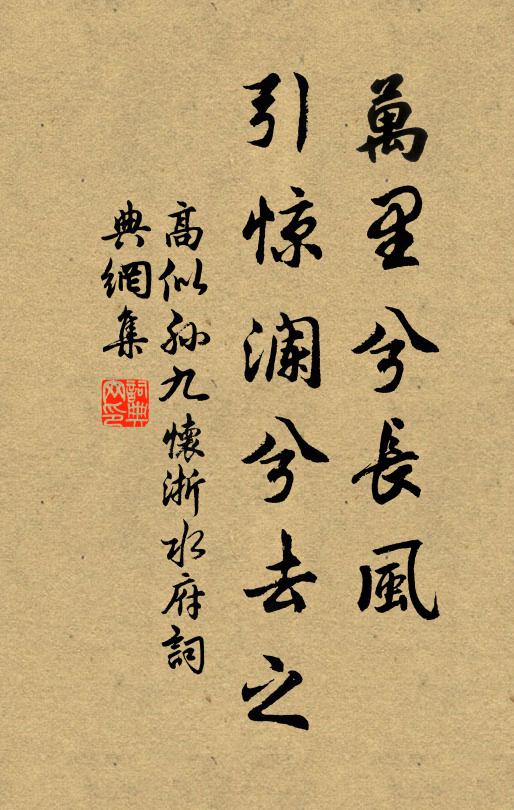 萬里兮長風
引惊澜兮去之
高似孙九懷浙水府詞
典網集
詞典网印